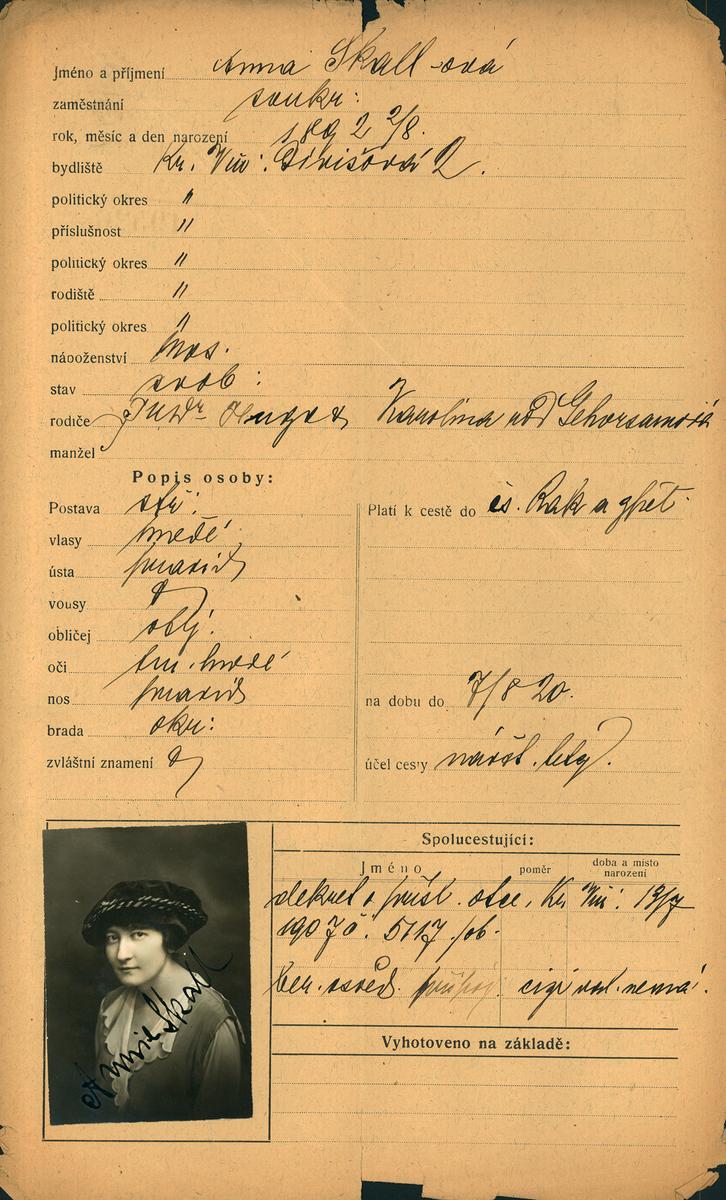 Jméno a příjmení Anna Skall-ová
zaměstnání soukr:
rok, měsíc a den narození 1892 2/8.
bydliště Kr. Vin: Divišová 2.
politický okres "
příslušnost "
politický okres "
rodiště "
politický okres "
náboženství mos.
stav svob:
rodiče JUDr Hugo & Karolina roz Gehorsamová
manžel
Popis osoby:
Postava stř:
vlasy hnědé
ústa pravid
vousy
obličej oblý.
oči tm. hnědé
nos pravid
brada okr:
zvláštní znamení
Platí k cestě do čs. Rak a zpět
na dobu do 7/8 20.
účel cesty návšt. tety.
Spolucestující:
Jméno poměr doba a místo narození
dekret o přísl. otce, Kr. Vin: 13/7
1907 č. 5117 /
ber. osvěd. cizí val. nemá.
Vyhotoveno na základě:
Annie Skall